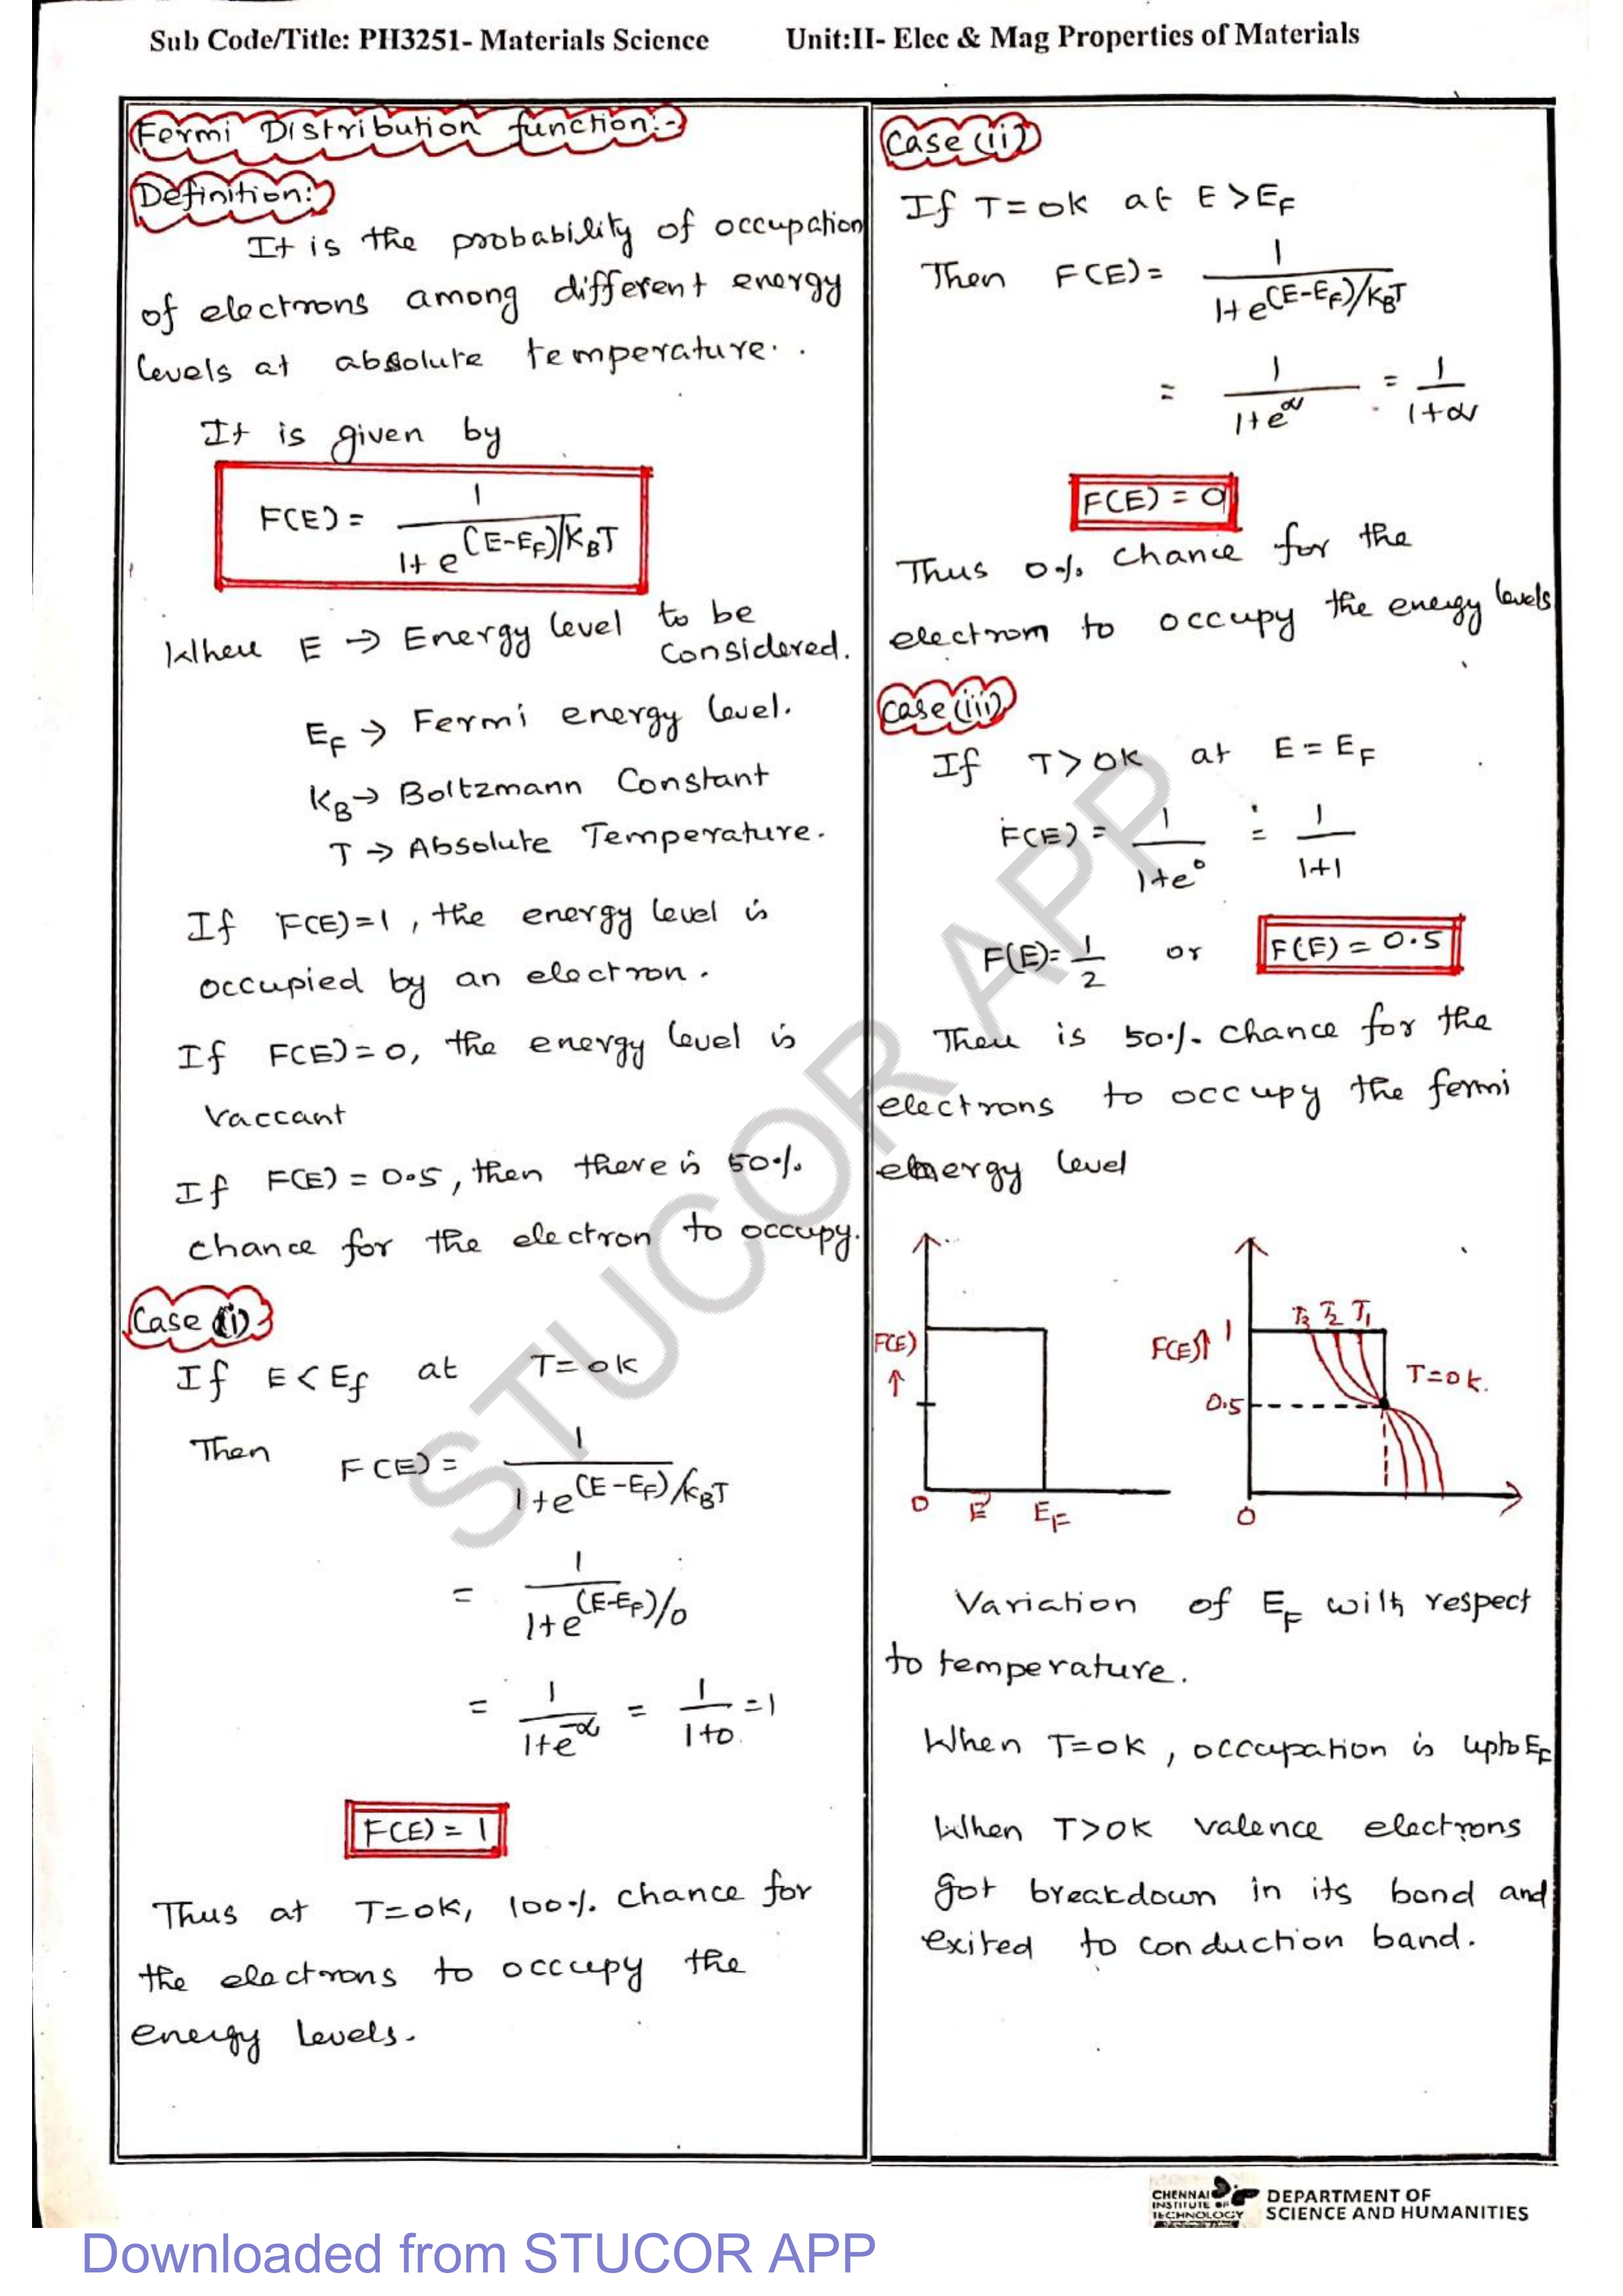 Sub Code/Title: PH3251- Materials Science Unit:II- Elec & Mag Properties of Materials
Fermi Distribution function:-
Definition:
It is the probability of occupation
of electrons among different energy
levels at absolute temperature.
It is given by
F(E) = 1 / 1+ e^(E-E_F)/K_BT
Where E → Energy level to be
considered.
E_F → Fermi energy level.
K_B → Boltzmann Constant
T → Absolute Temperature.
If F(E)=1, the energy level is
occupied by an electron.
If F(E)=0, the energy level is
Vaccant
If F(E) = 0.5, then there is 50%
chance for the electron to occupy.
Case (i)
If E < E_f at T= 0K
Then F(E) = 1 / 1+e^(E-E_F)/K_BT
= 1 / 1+e^(E-E_F)/0
= 1 / 1+e^-∞ = 1 / 1+0 = 1
F(E) = 1
Thus at T=0K, 100% chance for
the electrons to occupy the
energy levels.
Case (ii)
If T= 0K at E > E_F
Then F(E) = 1 / 1+e^(E-E_F)/K_BT
= 1 / 1+e^∞ = 1 / 1+∞
F(E) = 0
Thus 0% chance for the
electrom to occupy the energy levels
Case (iii)
If T > 0K at E = E_F
F(E) = 1 / 1+e^0 = 1 / 1+1
F(E)= 1/2 or F(E) = 0.5
There is 50% chance for the
electrons to occupy the fermi
energy level
F(E) ↑
0 E E_F
F(E)↑ 1 T3 T2 T1
T=0K.
0.5
0
Variation of E_F with respect
to temperature.
When T=0K, occupation is upto E_F
When T>0K valence electrons
got breakdown in its bond and
exited to conduction band.
STUCOR APP
CHENNAI
INSTITUTE OF
TECHNOLOGY
DEPARTMENT OF
SCIENCE AND HUMANITIES
Downloaded from STUCOR APP